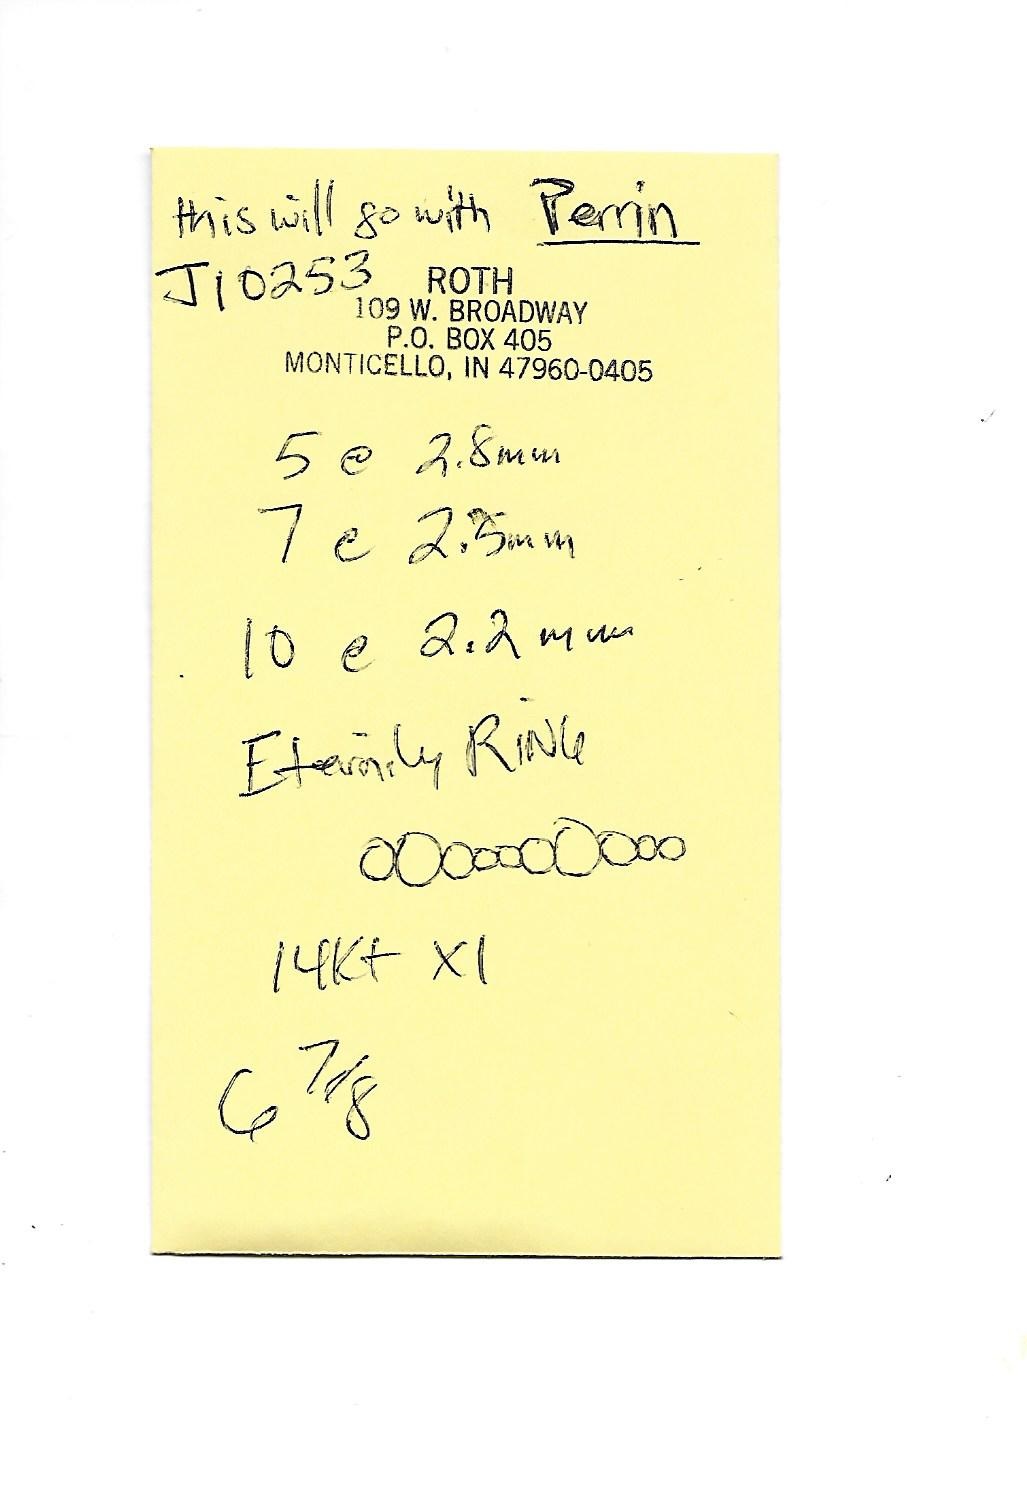 this will go with Perrin
J10253 ROTH
109 W. BROADWAY
P.O. BOX 405
MONTICELLO, IN 47960-0405
5 @ 2.8mm
7 @ 2.5mm
10 @ 2.2mm
Eternity RING
14Kt X1
6 7/8